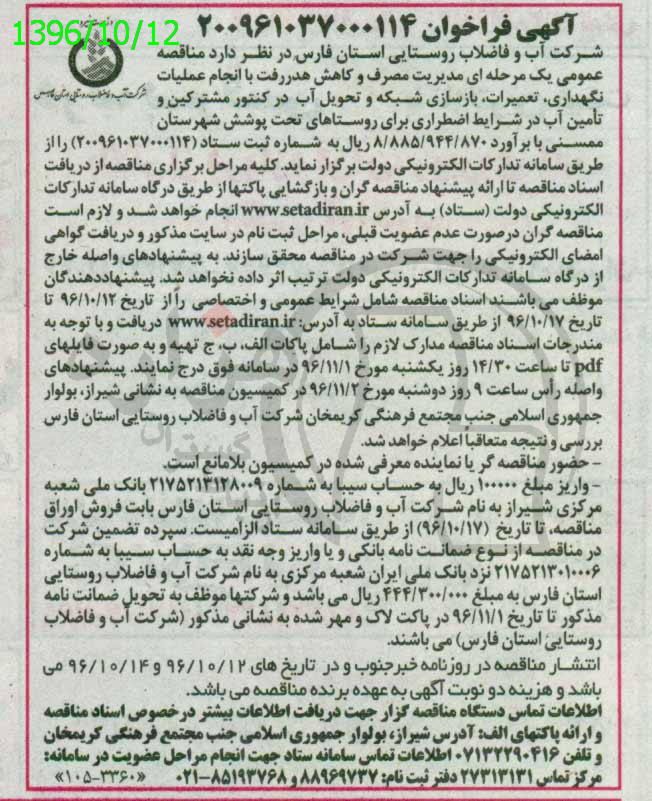 1396/10/12
آگهی فراخوان ۲۰۰۹۶۱۰۳۷۰۰۰۱۱۴
شرکت آب و فاضلاب روستایی استان فارس
شرکت آب و فاضلاب روستایی استان فارس در نظر دارد مناقصه
عمومی یک مرحله ای مدیریت مصرف و کاهش هدررفت با انجام عملیات
نگهداری، تعمیرات، بازسازی شبکه و تحویل آب در کنتور مشترکین و
تأمین آب در شرایط اضطراری برای روستاهای تحت پوشش شهرستان
ممسنی با برآورد ۸/۸۸۵/۹۴۴/۸۷۰ ریال به شماره ثبت ستاد (۲۰۰۹۶۱۰۳۷۰۰۰۱۱۴) را از
طریق سامانه تدارکات الکترونیکی دولت برگزار نماید. کلیه مراحل برگزاری مناقصه از دریافت
اسناد مناقصه تا ارائه پیشنهاد مناقصه گران و بازگشایی پاکتها از طریق درگاه سامانه تدارکات
الکترونیکی دولت (ستاد) به آدرس www.setadiran.ir انجام خواهد شد و لازم است
مناقصه گران درصورت عدم عضویت قبلی، مراحل ثبت نام در سایت مذکور و دریافت گواهی
امضای الکترونیکی را جهت شرکت در مناقصه محقق سازند. به پیشنهادهای واصله خارج
از درگاه سامانه تدارکات الکترونیکی دولت ترتیب اثر داده نخواهد شد. پیشنهاددهندگان
موظف می باشند اسناد مناقصه شامل شرایط عمومی و اختصاصی را از تاریخ ۹۶/۱۰/۱۲ تا
تاریخ ۹۶/۱۰/۱۷ از طریق سامانه ستاد به آدرس: www.setadiran.ir دریافت و با توجه به
مندرجات اسناد مناقصه مدارک لازم را شامل پاکات الف، ب، ج تهیه و به صورت فایلهای
pdf تا ساعت ۱۴/۳۰ روز یکشنبه مورخ ۹۶/۱۱/۱ در سامانه فوق درج نمایند. پیشنهادهای
واصله رأس ساعت ۹ روز دوشنبه مورخ ۹۶/۱۱/۲ در کمیسیون مناقصه به نشانی شیراز، بولوار
جمهوری اسلامی جنب مجتمع فرهنگی کریمخان شرکت آب و فاضلاب روستایی استان فارس
بررسی و نتیجه متعاقباً اعلام خواهد شد.
- حضور مناقصه گر یا نماینده معرفی شده در کمیسیون بلامانع است.
- واریز مبلغ ۱۰۰۰۰۰ ریال به حساب سیبا به شماره ۲۱۷۵۲۱۳۱۲۸۰۰۹ بانک ملی شعبه
مرکزی شیراز به نام شرکت آب و فاضلاب روستایی استان فارس بابت فروش اوراق
مناقصه، تا تاریخ (۹۶/۱۰/۱۷) از طریق سامانه ستاد الزامیست. سپرده تضمین شرکت
در مناقصه از نوع ضمانت نامه بانکی و یا واریز وجه نقد به حساب سیبا به شماره
۲۱۷۵۲۱۳۰۱۰۰۰۶ نزد بانک ملی ایران شعبه مرکزی به نام شرکت آب و فاضلاب روستایی
استان فارس به مبلغ ۴۴۴/۳۰۰/۰۰۰ ریال می باشد و شرکتها موظف به تحویل ضمانت نامه
مذکور تا تاریخ ۹۶/۱۱/۱ در پاکت لاک و مهر شده به نشانی مذکور (شرکت آب و فاضلاب
روستایی استان فارس) می باشند.
انتشار مناقصه در روزنامه خبرجنوب و در تاریخ های ۹۶/۱۰/۱۲ و ۹۶/۱۰/۱۴ می
باشد و هزینه دو نوبت آگهی به عهده برنده مناقصه می باشد.
اطلاعات تماس دستگاه مناقصه گزار جهت دریافت اطلاعات بیشتر درخصوص اسناد مناقصه
و ارائه پاکتهای الف: آدرس شیراز، بولوار جمهوری اسلامی جنب مجتمع فرهنگی کریمخان
و تلفن ۰۷۱۳۲۲۹۰۴۱۶ اطلاعات تماس سامانه ستاد جهت انجام مراحل عضویت در سامانه:
مرکز تماس ۲۷۳۱۳۱۳۱ دفتر ثبت نام: ۸۸۹۶۹۷۳۷ و ۸۵۱۹۳۷۶۸-۰۲۱ «۱۰۵-۳۳۶۰»